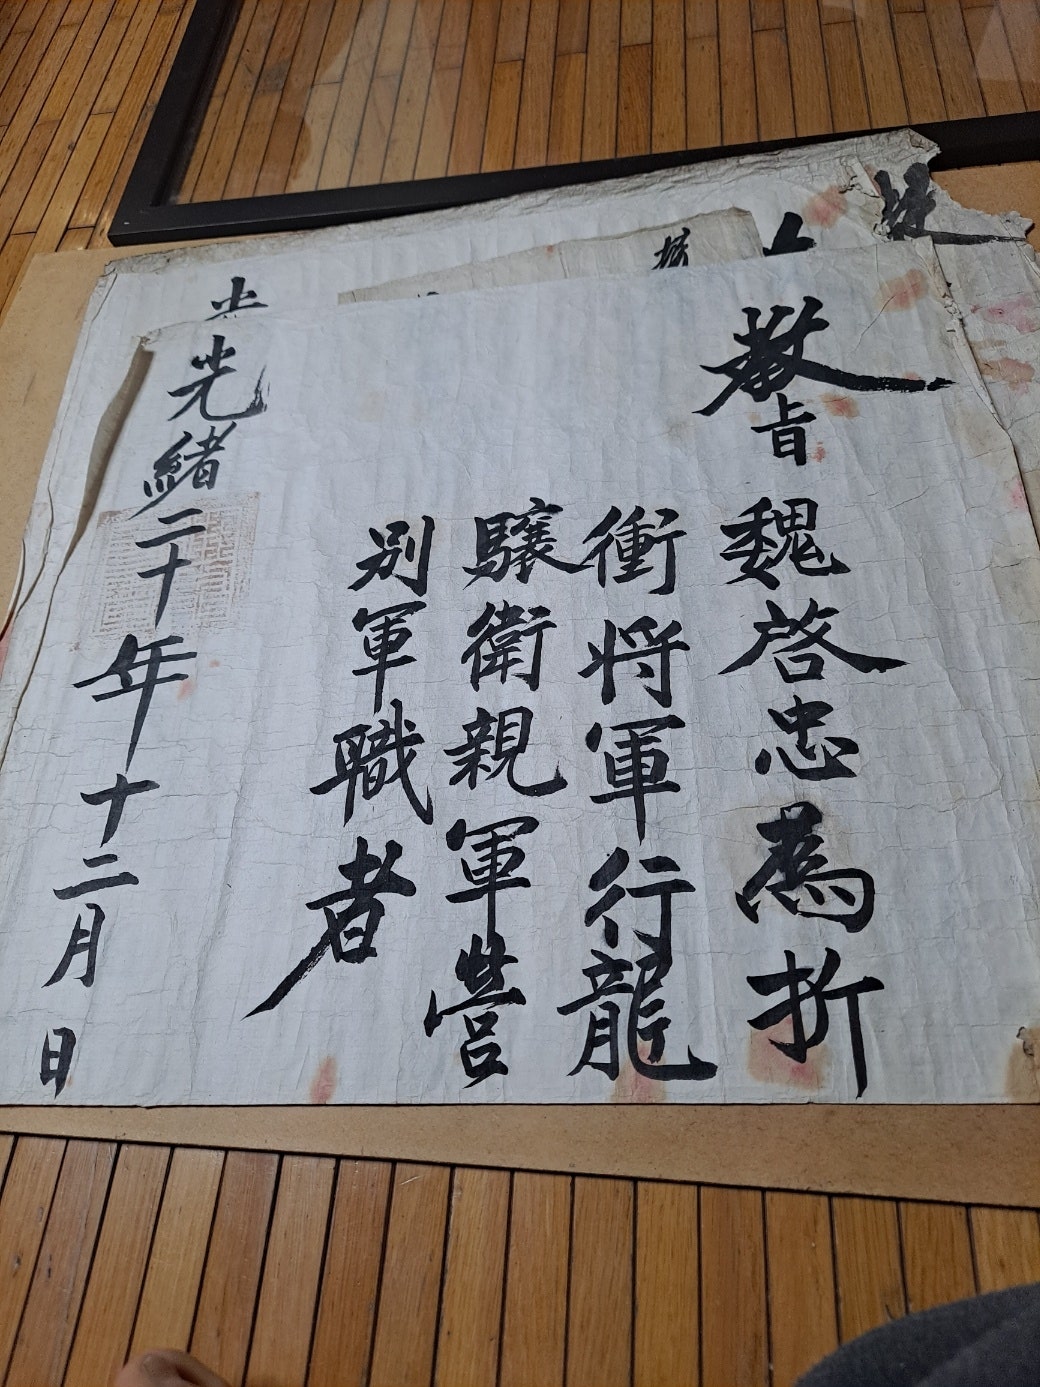 教旨
魏啓忠為折
衝將軍行龍
驤衛親軍營
別軍職者
光緒二十年十二月 日
光